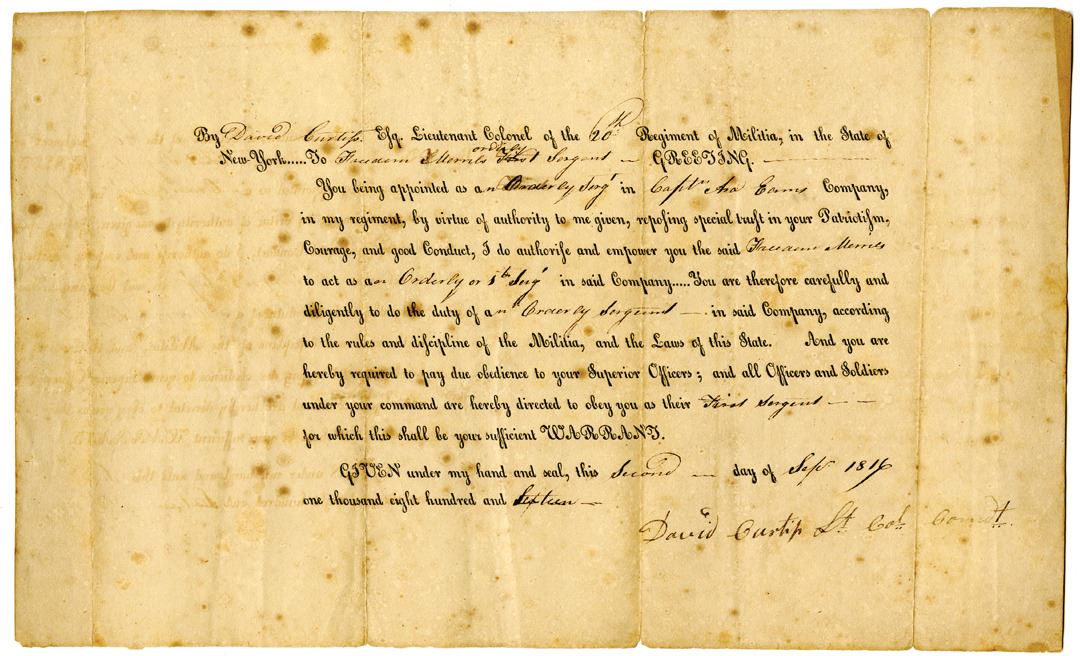 By David Curtiſs Eſq. Lieutenant Colonel of the 20th Regiment of Militia, in the State of
orderly
New-York.....To Freedom Merrils First Sergent — GREETING. —
You being appointed as an Orderly Sergt in Captn Aſa Company,
in my regiment, by virtue of authority to me given, repoſing special truſt in your Patriotiſm,
Courage, and good Conduct, I do authoriſe and empower you the said Freedom Merrils
to act as an Orderly or 1st Sergt in said Company.....You are therefore carefully and
diligently to do the duty of an Orderly Sergent — in said Company, according
to the rules and diſcipline of the Militia, and the Laws of this State. And you are
hereby required to pay due obedience to your Superior Officers; and all Officers and Soldiers
under your command are hereby directed to obey you as their First Sergent — —
for which this shall be your sufficient WARRANT.
GIVEN under my hand and seal, this Second — day of Sepr 1816
one thousand eight hundred and Sixteen —
David Curtiſs Lt Col Comdt.